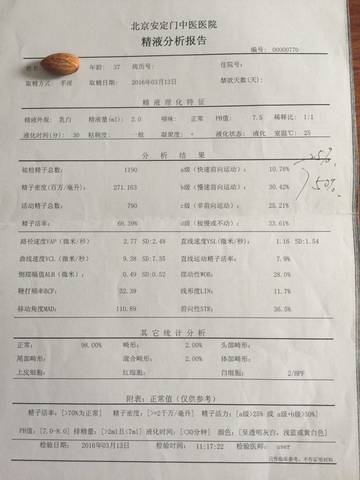 北京安定门中医医院
精液分析报告
编号: 00000770
年龄: 37 病历号: 住院号:
取精方式: 手淫 取精日期: 2016年03月13日 禁欲天数(天):
精液理化特征
精液外观: 乳白 精液量(ml): 2.0 嗅味: 正常 PH值: 7.5 稀释比: 1:1
液化时间(分): 30 粘稠度: 一般 凝聚度: 液化状态: 液化 室温度: 25
分析结果
被检精子总数: 1190 a级(快速前向运动): 10.76%
精子密度(百万/毫升): 271.163 b级(慢速前向运动): 30.42%
活动精子总数: 790 c级(非前向运动): 25.21%
精子活率: 66.39% d级(极慢或不动): 33.61%
≥25%
50%
路径速度VAP(微米/秒) 2.77 SD:2.48 直线速度VSL(微米/秒): 1.16 SD:1.54
曲线速度VCL(微米/秒) 9.38 SD:7.35 直线运动精子活率: 7.9%
侧摆幅值ALH(微米/秒) 0.49 SD:0.52 摆动性WOB: 28.0%
鞭打频率BCF: 32.39 线形度LIN: 11.7%
移动角度MAD: 110.89 前向性STR: 36.5%
其它统计分析
正常: 98.00% 畸形: 2.00% 头部畸形:
尾部畸形: 混合畸形: 2.00% 体部畸形:
上皮细胞: 红细胞: 白细胞: 2/HPF
附表: 正常值(仅供参考)
精子活率: [>70%为正常] 精子密度: [>=2千万/毫升] 精子活力: [a级>25% 或 a级+b级>50%]
PH值: [7.0-8.0] 样精量: [>2ml且<7ml] 液化时间: [<30分钟] 颜色: [呈透明灰白、浅蓝或黄白色]
检验日期: 2016年03月13日 检验时间: 11:17:22 检验医师: user